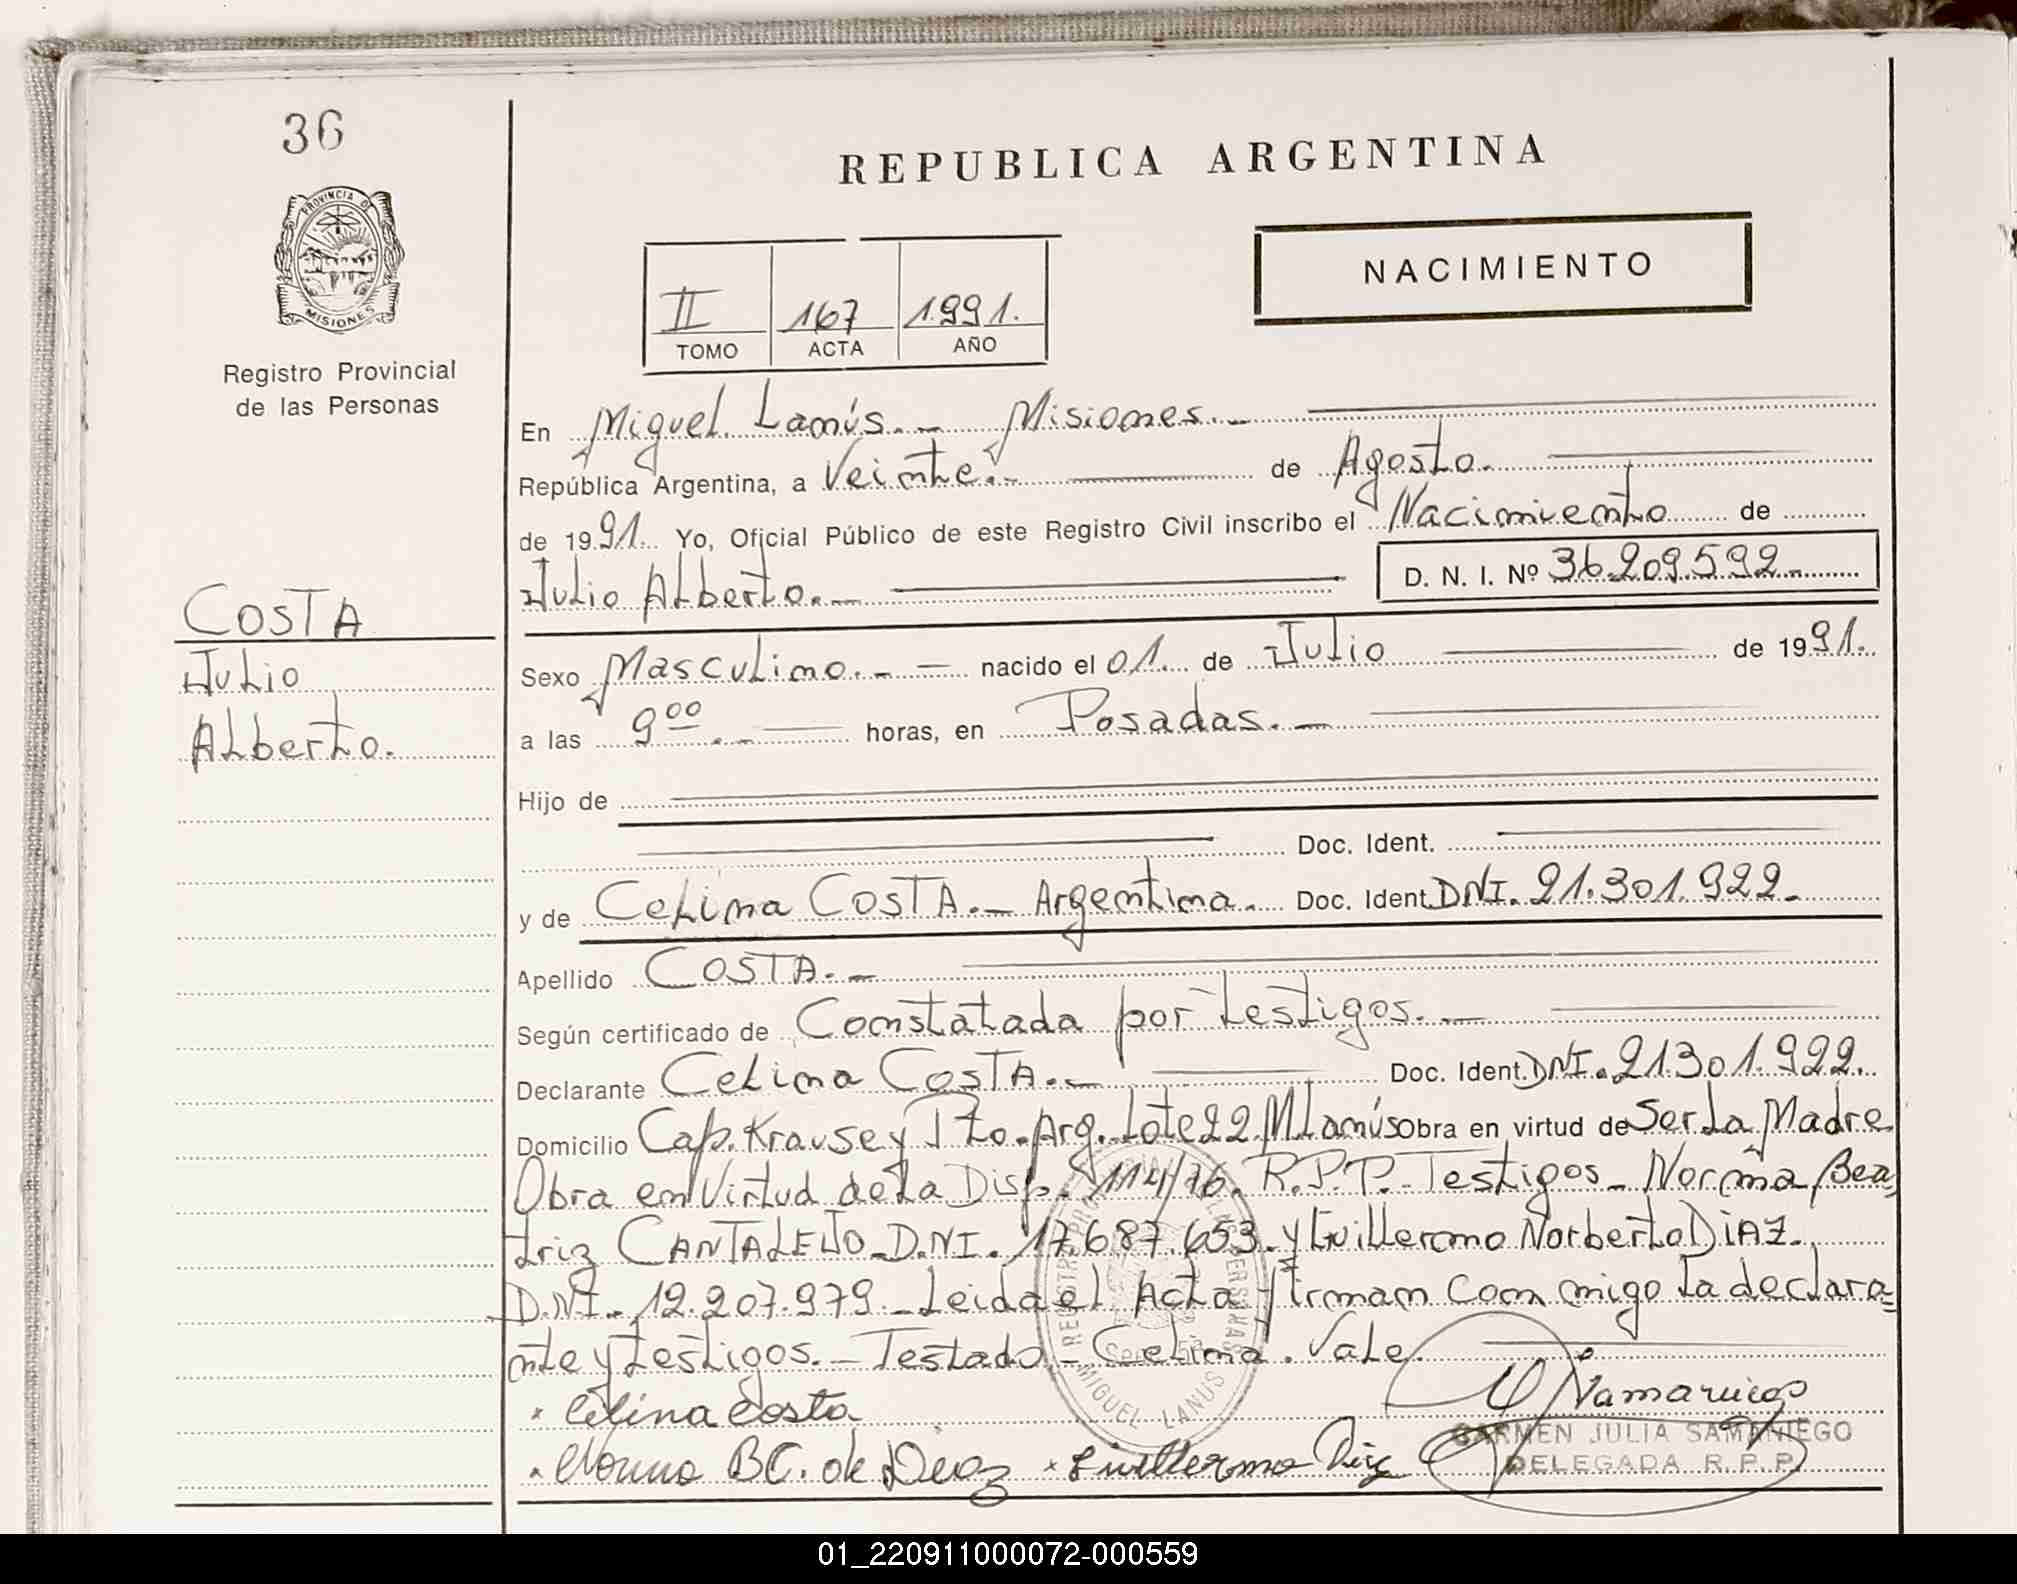 36
REPUBLICA ARGENTINA
PROVINCIA DE
MISIONES
NACIMIENTO
II 167 1.991.
TOMO ACTA AÑO
Registro Provincial
de las Personas
En Miguel Lanús.- Misiones.-
República Argentina, a Veinte.- de Agosto.
de 1991. Yo, Oficial Público de este Registro Civil inscribo el Nacimiento de
Julio Alberto.- D. N. I. Nº 36.209.592.-
COSTA
Julio
Alberto.
Sexo Masculino.- nacido el 01. de Julio de 1991.
a las 9⁰⁰.- horas, en Posadas.-
Hijo de
Doc. Ident.
y de Celina COSTA.- Argentina. Doc. Ident. DNI. 21.301.922.-
Apellido COSTA.-
Según certificado de Constatada por testigos.-
Declarante Celina COSTA.- Doc. Ident. DNI. 21.301.922.
Domicilio Cap. Krause y Pto. Arg. Lote 22 M Lanús obra en virtud de Ser La Madre
Obra en Virtud de La Disp. 114/76. R.P.P.- Testigos- Norma Bea
triz CANTALEJO- D.N.I. 17.687.653. y Guillermo Norberto DIAZ.
D.NI. 12.207.979.- Leida el Acta firman Con migo La declara=
nte y testigos.- Testado- Celina. Vale.
REGISTRO PROVINCIAL DE LAS PERSONAS
MIGUEL LANUS
Celina Costa
Norma BC. de Diaz Guillermo Diaz
CARMEN JULIA SAMANIEGO
DELEGADA R.P.P.
01_220911000072-000559